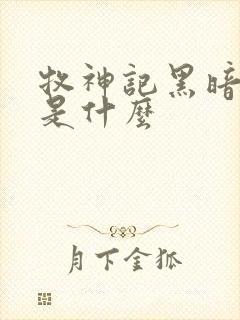 牧神記黑暗
是什麼
月下金狐